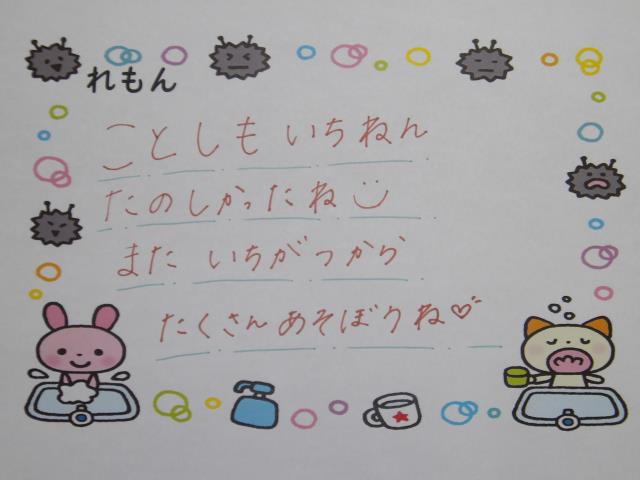 れもん
ことしも いちねん
たのしかったね
また いちがつから
たくさんあそぼうね♡